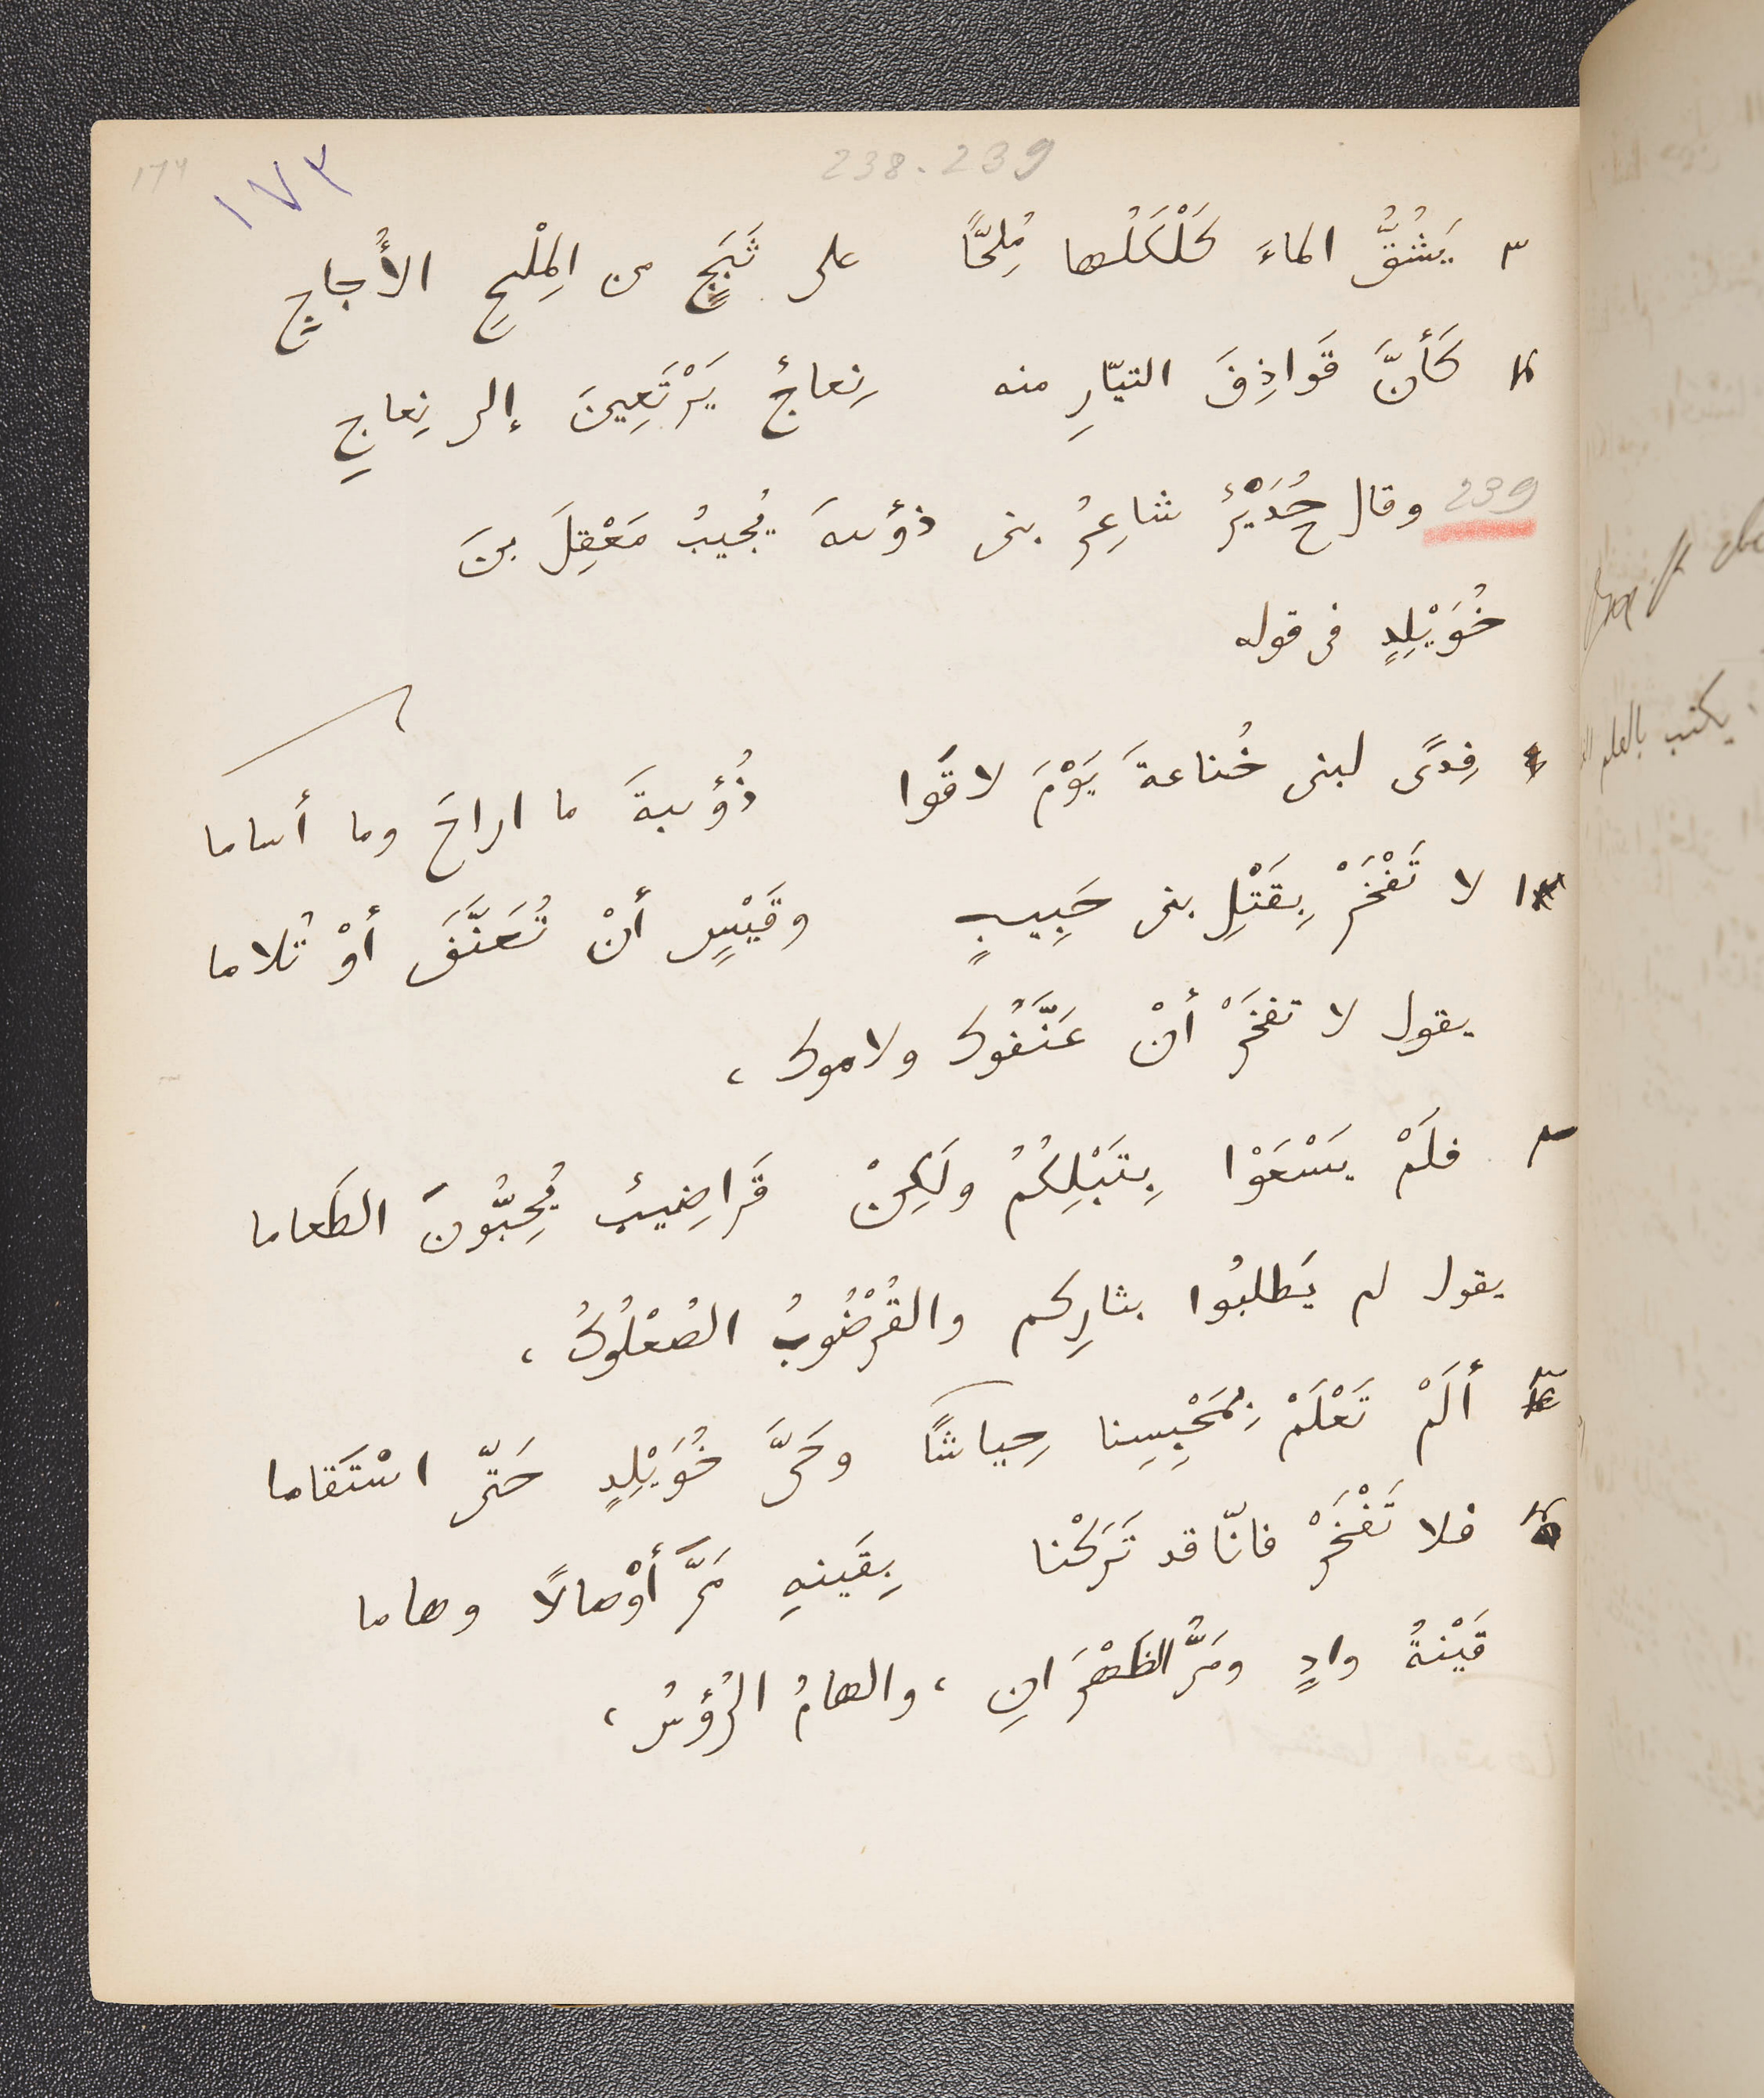 238.239
١٧٣
١٧٣
٣ يَشُقُّ الماءَ كَلْكَلُها مُلِحًّا على ثَبَجٍ من المِلْحِ الأُجاجِ
٤ كَأنَّ قَواذِفَ التيّارِ منه نِعاجٌ يَرْتَعِينَ إلى نِعاجِ
239 وقال حُدَيْرٌ شاعِرُ بنى ذؤيبةَ يُجيبُ مَعْقِلَ بنَ
خُوَيْلِدٍ فى قوله
فِدًى لبنى خُناعةَ يَوْمَ لاقَوا ذُؤيبةَ ما اراحَ وما أساما
١ لا تَفْخَرْ بِقَتْلِ بنى حَبِيبٍ وقَيْسٍ أنْ تُعَنَّفَ أوْ تُلاما
يقول لا تفخَرْ أنْ عَنَّفُوك ولاموك ،
٢ فلَمْ يَسْعَوْا بِتَبْلِكُمُ ولَكِنْ قَراضِيبٌ يُحِبُّونَ الطَعاما
يقول لم يَطلبُوا بثارِكم والقُرْضُوبُ الصُعْلُوكُ ،
٣ ألَمْ تَعْلَمْ بِمَحْبِسِنا حِياشًا وحَىَّ خُوَيْلِدٍ حَتّى اسْتَقاما
٤ فلا تَفْخَرْ فانّا قد تَرَكْنا بِقَينةِ مَرَّ أوْصالًا وهاما
قَيْنةُ وادٍ ومَرُّ الظَهْرَانِ ، والهامُ الرُؤسُ ،
يكتب بالعلم